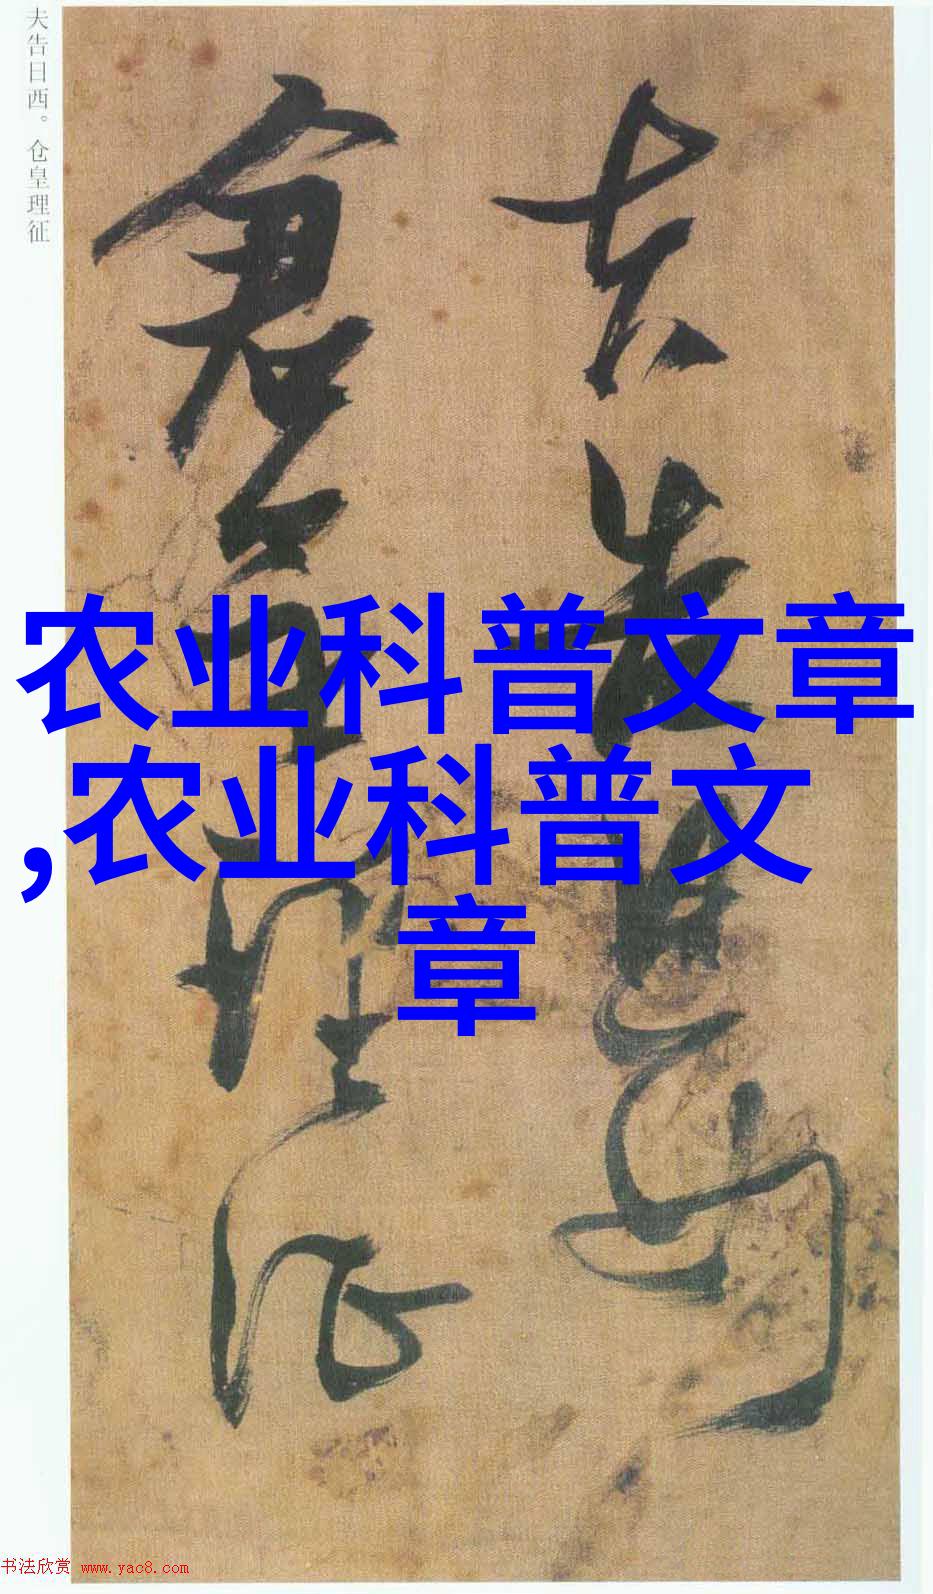 夫告日西。仓皇理征
夫告日西
倉皇理征
农业科普文章
,农业科普文
章
书法欣赏 www.yac8.com